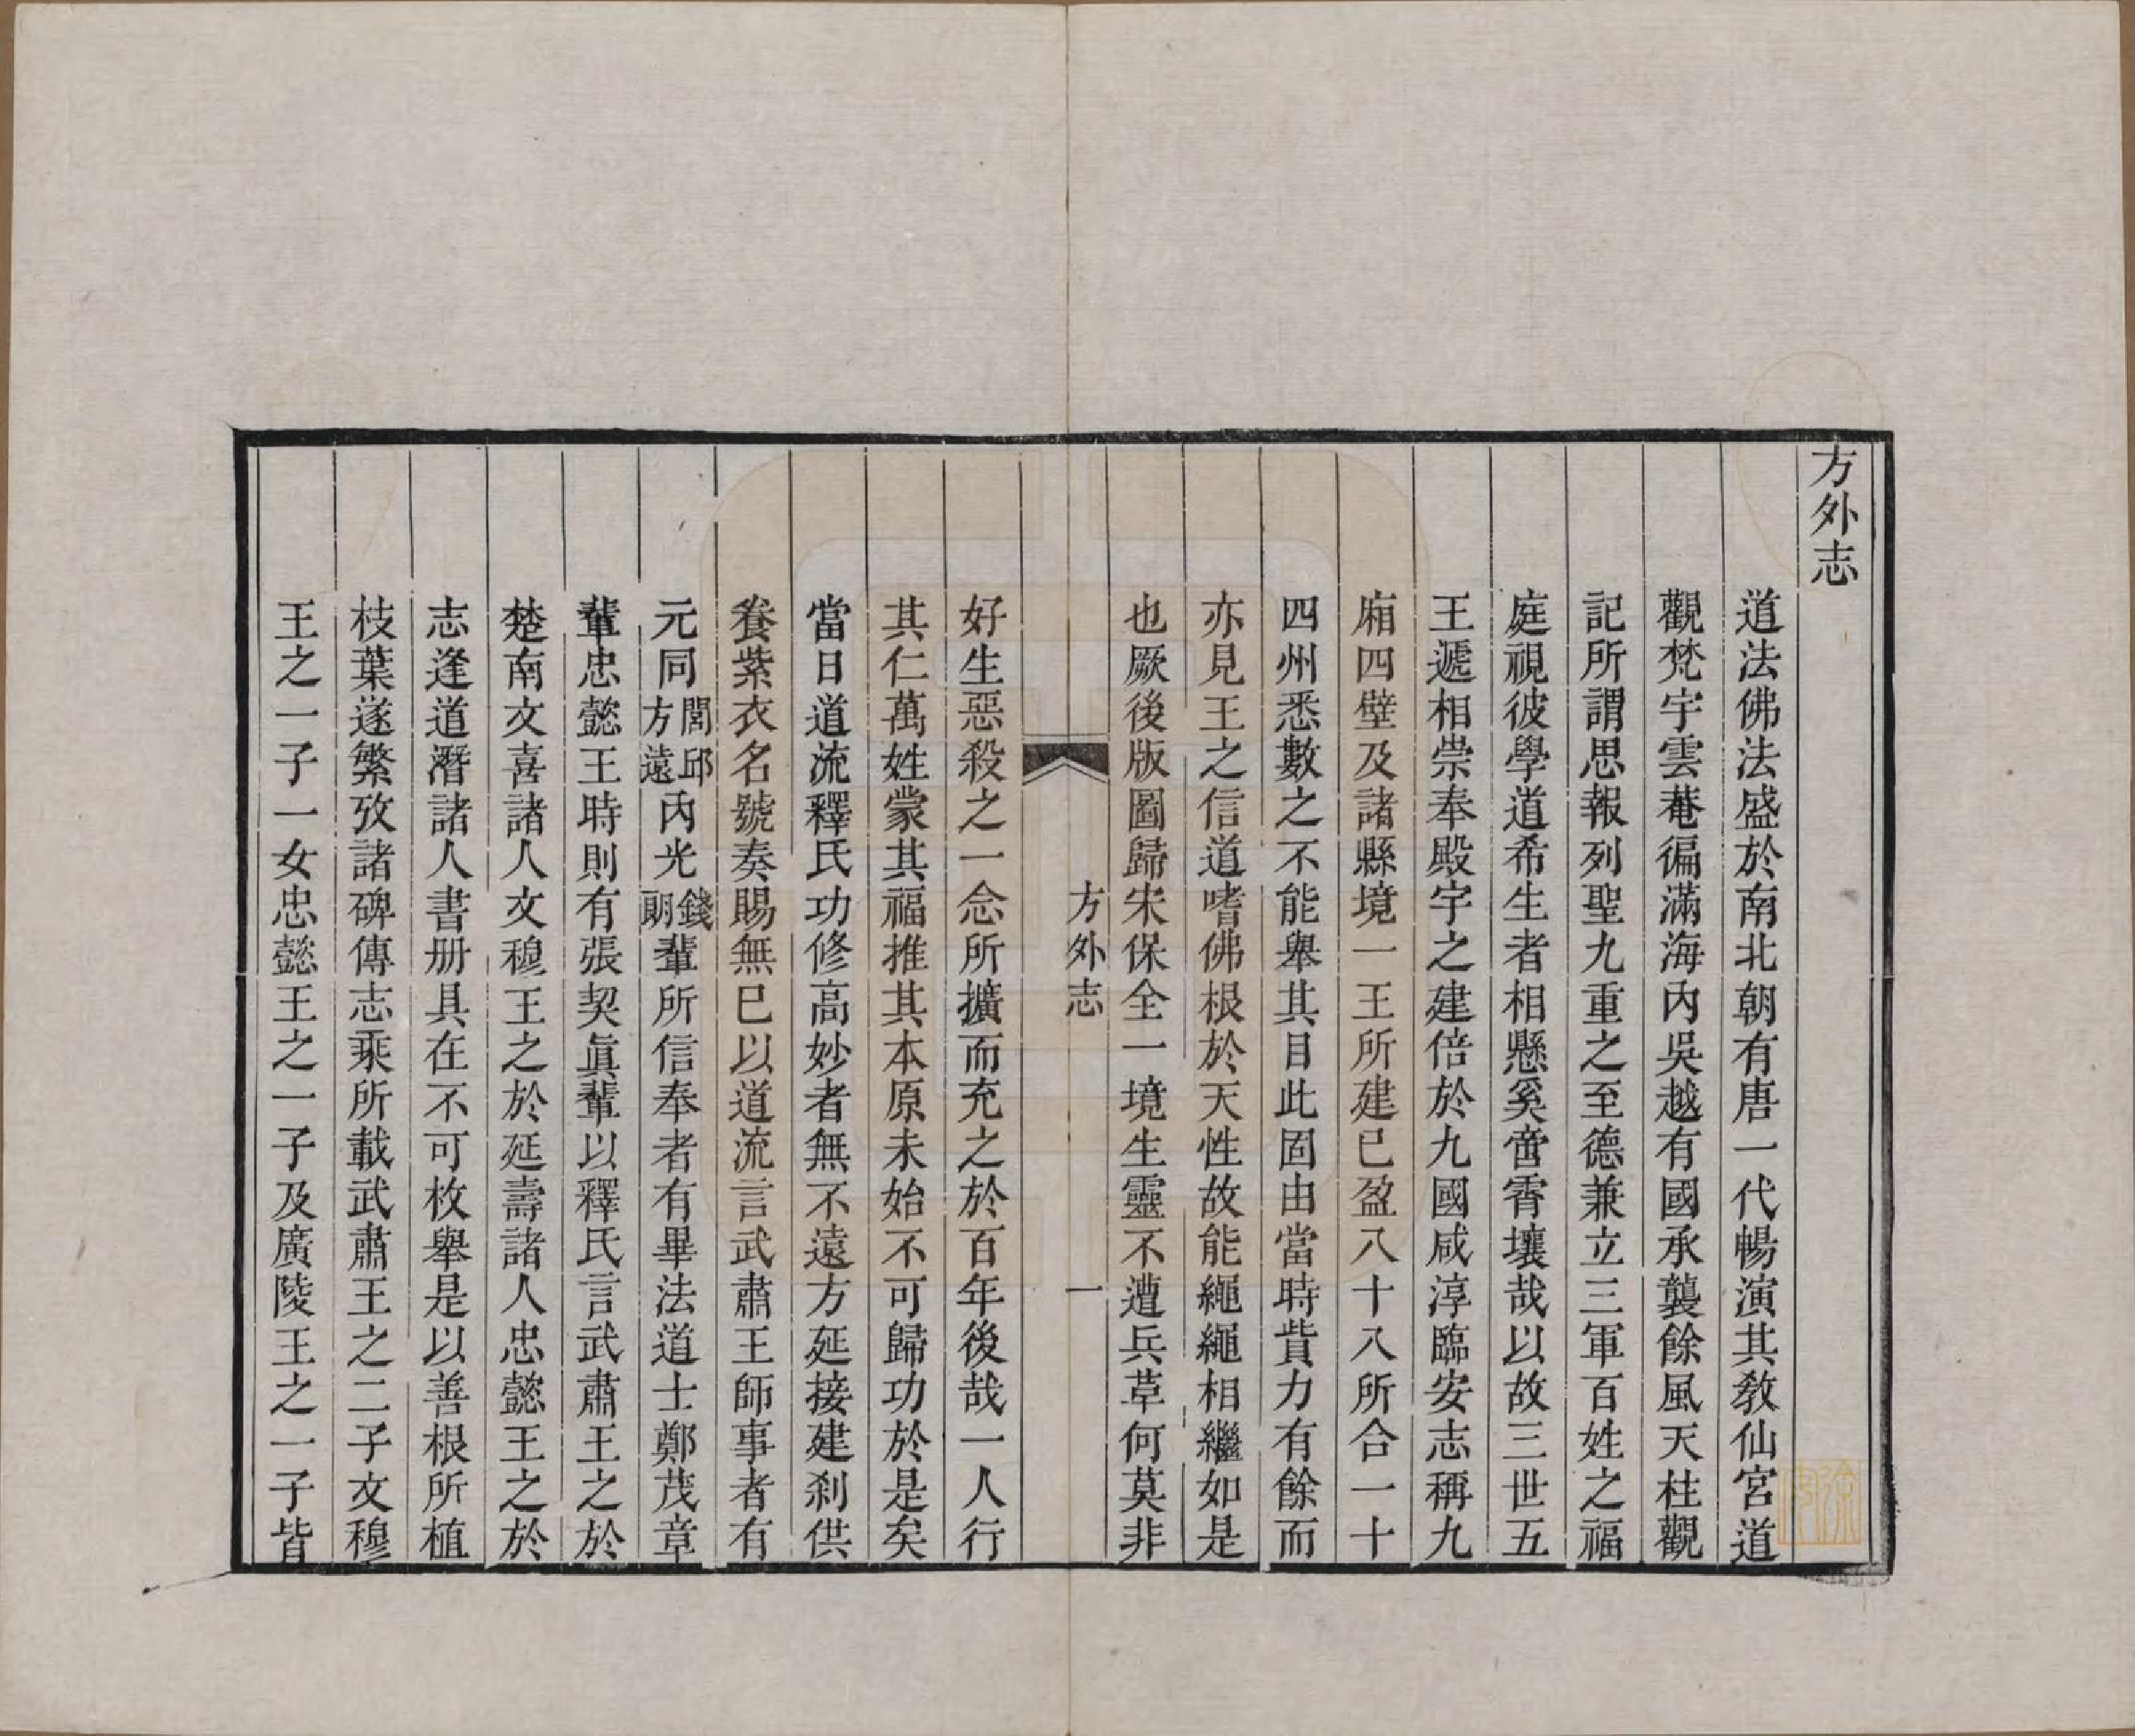 方外志
道法佛法盛於南北朝有唐一代暢演其敎仙宮道
觀梵宇雲菴徧滿海內吳越有國承襲餘風天柱觀
記所謂思報列聖九重之至德兼立三軍百姓之福
庭視彼學道希生者相懸奚啻霄壤哉以故三世五
王遞相崇奉殿宇之建倍於九國咸淳臨安志稱九
廂四壁及諸縣境一王所建已盈八十八所合一十
四州悉數之不能舉其目此固由當時貲力有餘而
亦見王之信道嗜佛根於天性故能繩繩相繼如是
也厥後版圖歸宋保全一境生靈不遭兵革何莫非
方外志　一
好生惡殺之一念所擴而充之於百年後哉一人行
其仁萬姓蒙其福推其本原未始不可歸功於是矣
當日道流釋氏功修高妙者無不遠方延接建刹供
養紫衣名號奏賜無已以道流言武肅王師事者有
元同閭邱方遠內光錢朗輩所信奉者有畢法道士鄭茂章
輩忠懿王時則有張契眞輩以釋氏言武肅王之於
楚南文喜諸人文穆王之於延壽諸人忠懿王之於
志逢道潛諸人書册具在不可枚舉是以善根所植
枝葉遂繁攷諸碑傳志乘所載武肅王之二子文穆
王之一子一女忠懿王之一子及廣陵王之一子皆